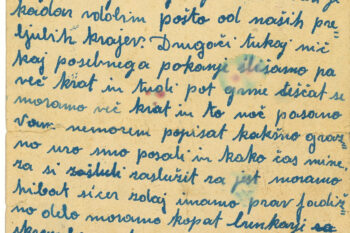 kadar vdobim pošto od naših pre=
ljubih krajev. Drugoči tukaj nič
kaj posebnega pokanje slišamo pa
več krat in tudi pot gremo
moramo več krat in to noč pa smo
Vam nemorem popisat kakšno graz
no uro smo in kako čas mine,
za si zaslužit za jest moramo
hibat sicer zdaj imamo prav
no delo moramo kopat bunkarje